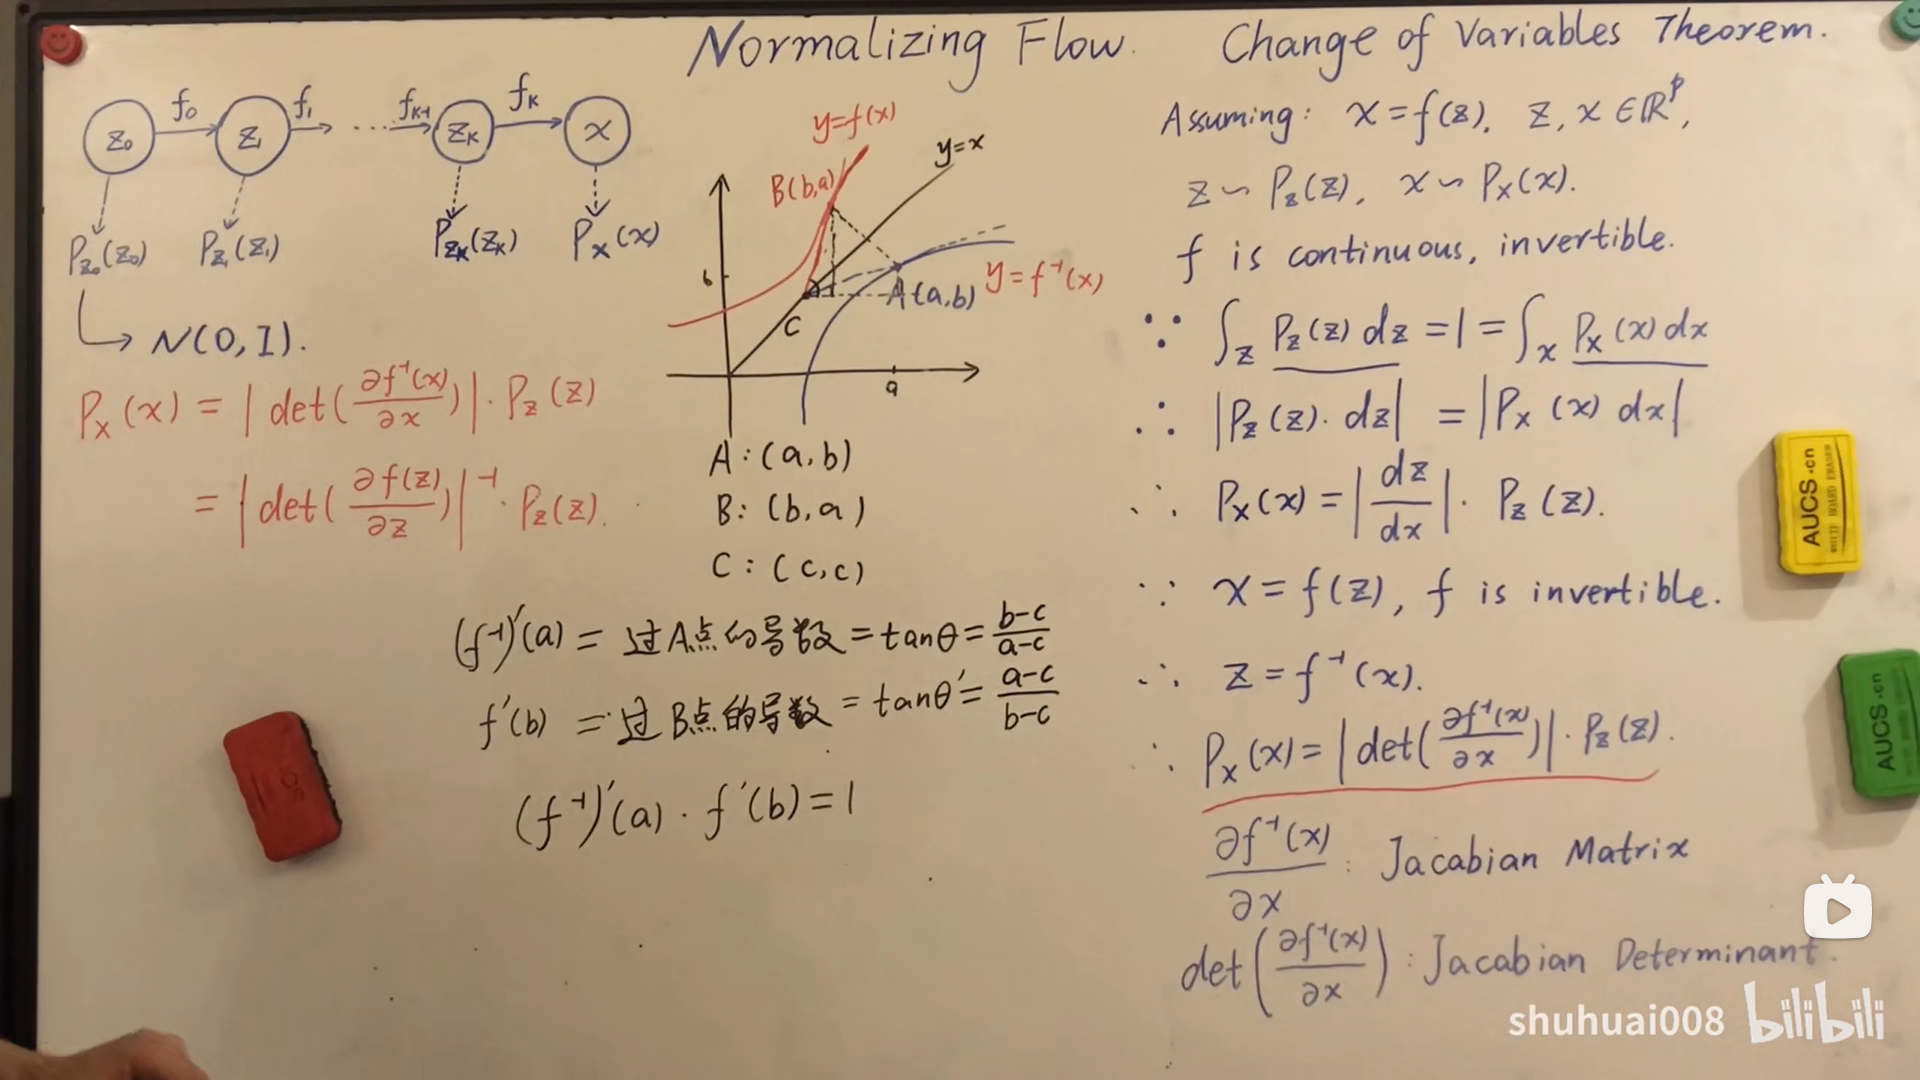 Normalizing Flow. Change of Variables Theorem.
z₀ f₀ z₁ f₁ ... f_{K-1} z_K f_K x
P_{z₀}(z₀) P_{z₁}(z₁) P_{z_K}(z_K) P_x(x)
→ N(0, I).
P_x(x) = |det(∂f⁻¹(x)/∂x)| · P_z(z)
= |det(∂f(z)/∂z)|⁻¹ · P_z(z).
y=f(x)
y=x
B(b,a)
A(a,b)
y=f⁻¹(x)
b
C
a
A: (a,b)
B: (b,a)
C: (c,c)
(f⁻¹)'(a) = 过A点的导数 = tanθ = (b-c)/(a-c)
f'(b) = 过B点的导数 = tanθ' = (a-c)/(b-c)
(f⁻¹)'(a) · f'(b) = 1
Assuming: x = f(z). z, x ∈ ℝᵖ,
z ∽ P_z(z), x ∽ P_x(x).
f is continuous, invertible.
∵ ∫_z P_z(z) dz = 1 = ∫_x P_x(x) dx
∴ |P_z(z) · dz| = |P_x(x) dx|
∴ P_x(x) = |dz/dx| · P_z(z).
∵ x = f(z), f is invertible.
∴ z = f⁻¹(x).
∴ P_x(x) = |det(∂f⁻¹(x)/∂x)| · P_z(z).
∂f⁻¹(x)/∂x : Jacabian Matrix
det(∂f⁻¹(x)/∂x) : Jacabian Determinant.
AUCS.cn
AUCS.cn
shuhuai008 bilibili